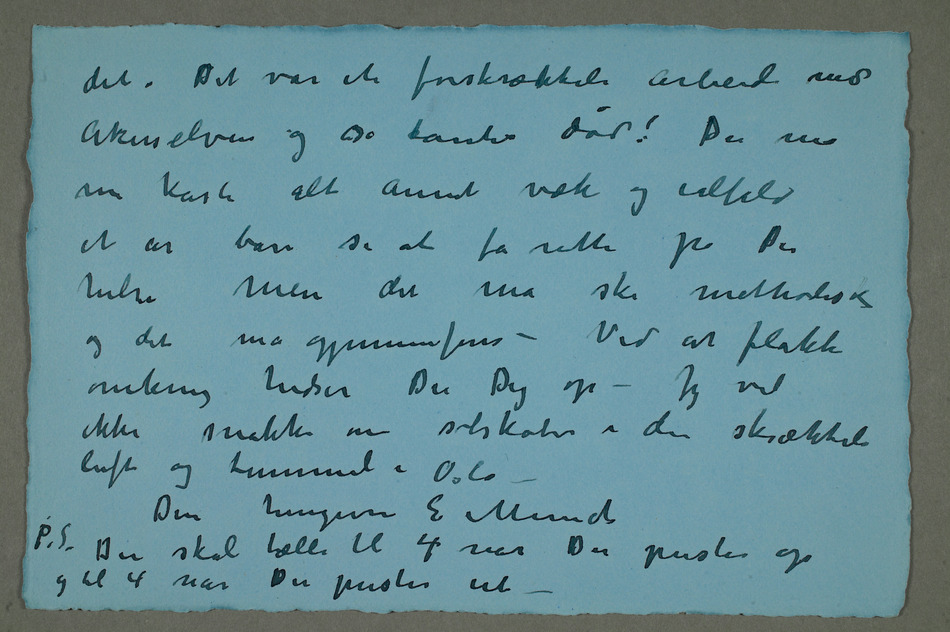 det. Det var et forskrækkeli arbeid med
Akerselven og så tantes død! Du må
nu kaste alt annet væk og ialfald
et år bare se at få rette på Din
helse Men det må ske methodisk
og det må gjennemføres – Ved at flakke
omkring hidser Du Dig op – Jeg vil
ikke snakke om selskaber i den skrækkeli
luft og tummel i Oslo –
Din hengivne E Munch
P.S. Du skal tælle til 4 når Du puster op
og til 4 når Du puster ut –